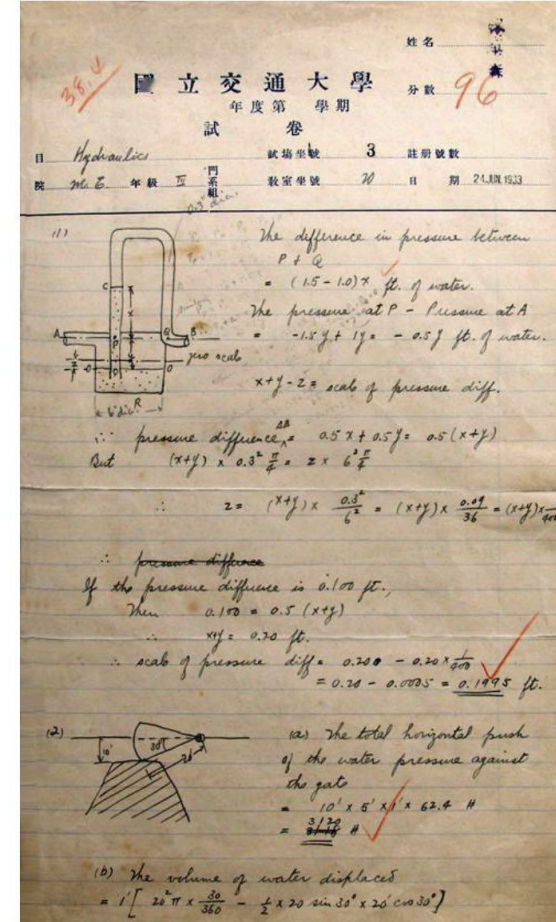 姓名
國立交通大學
分數 96
38.4
年度第 學期
試卷
目 Hydraulics 試塲坐號 3 註册號數
院 M.E. 年級 IV 門系組 教室坐號 20 日期 24 JUN. 1933
(1)
0.3" dia.
C
A
P
Q
B
zero scale
O
O
R
6" dia.
x
The difference in pressure between
P & Q
= (1.5 - 1.0) x ft. of water.
The pressure at P - Pressure at A
= -1.5 y + 1y = - 0.5 y ft. of water.
x+y-z = scale of pressure diff.
∴ pressure difference AB = 0.5 x + 0.5 y = 0.5 (x+y)
But (x+y) × 0.3² π/4 = z × 6² π/4
∴ z = (x+y) × 0.3²/6² = (x+y) × 0.09/36 = (x+y) × 1/400
∴ pressure difference
If the pressure difference is 0.100 ft.,
Then 0.100 = 0.5 (x+y)
∴ x+y = 0.20 ft.
∴ scale of pressure diff = 0.200 - 0.20 × 1/400
= 0.20 - 0.0005 = 0.1995 ft.
(2)
10'
30°
20'
(a) The total horizontal push
of the water pressure against
the gate
= 10' × 5' × 1' × 62.4 #
= 3120 #
(b) The volume of water displaced
= 1' [ 20² π × 30/360 - 1/2 × 20 sin 30° × 20 cos 30° ]